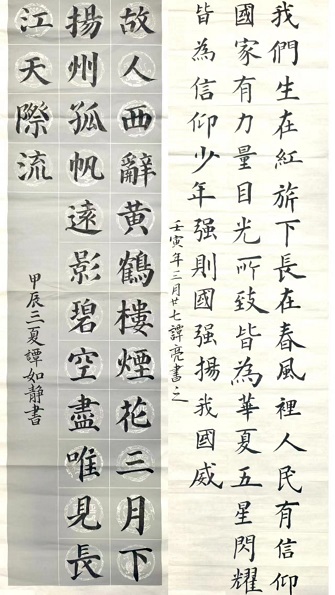 我們生在紅旂下長在春風裡人民有信仰
國家有力量目光所致皆為華夏五星閃耀
皆為信仰少年强則國强揚我國威
壬寅年三月廿七譚亮書之
故人西辭黃鶴樓煙花三月下
揚州孤帆遠影碧空盡唯見長
江天際流
甲辰三夏譚如靜書